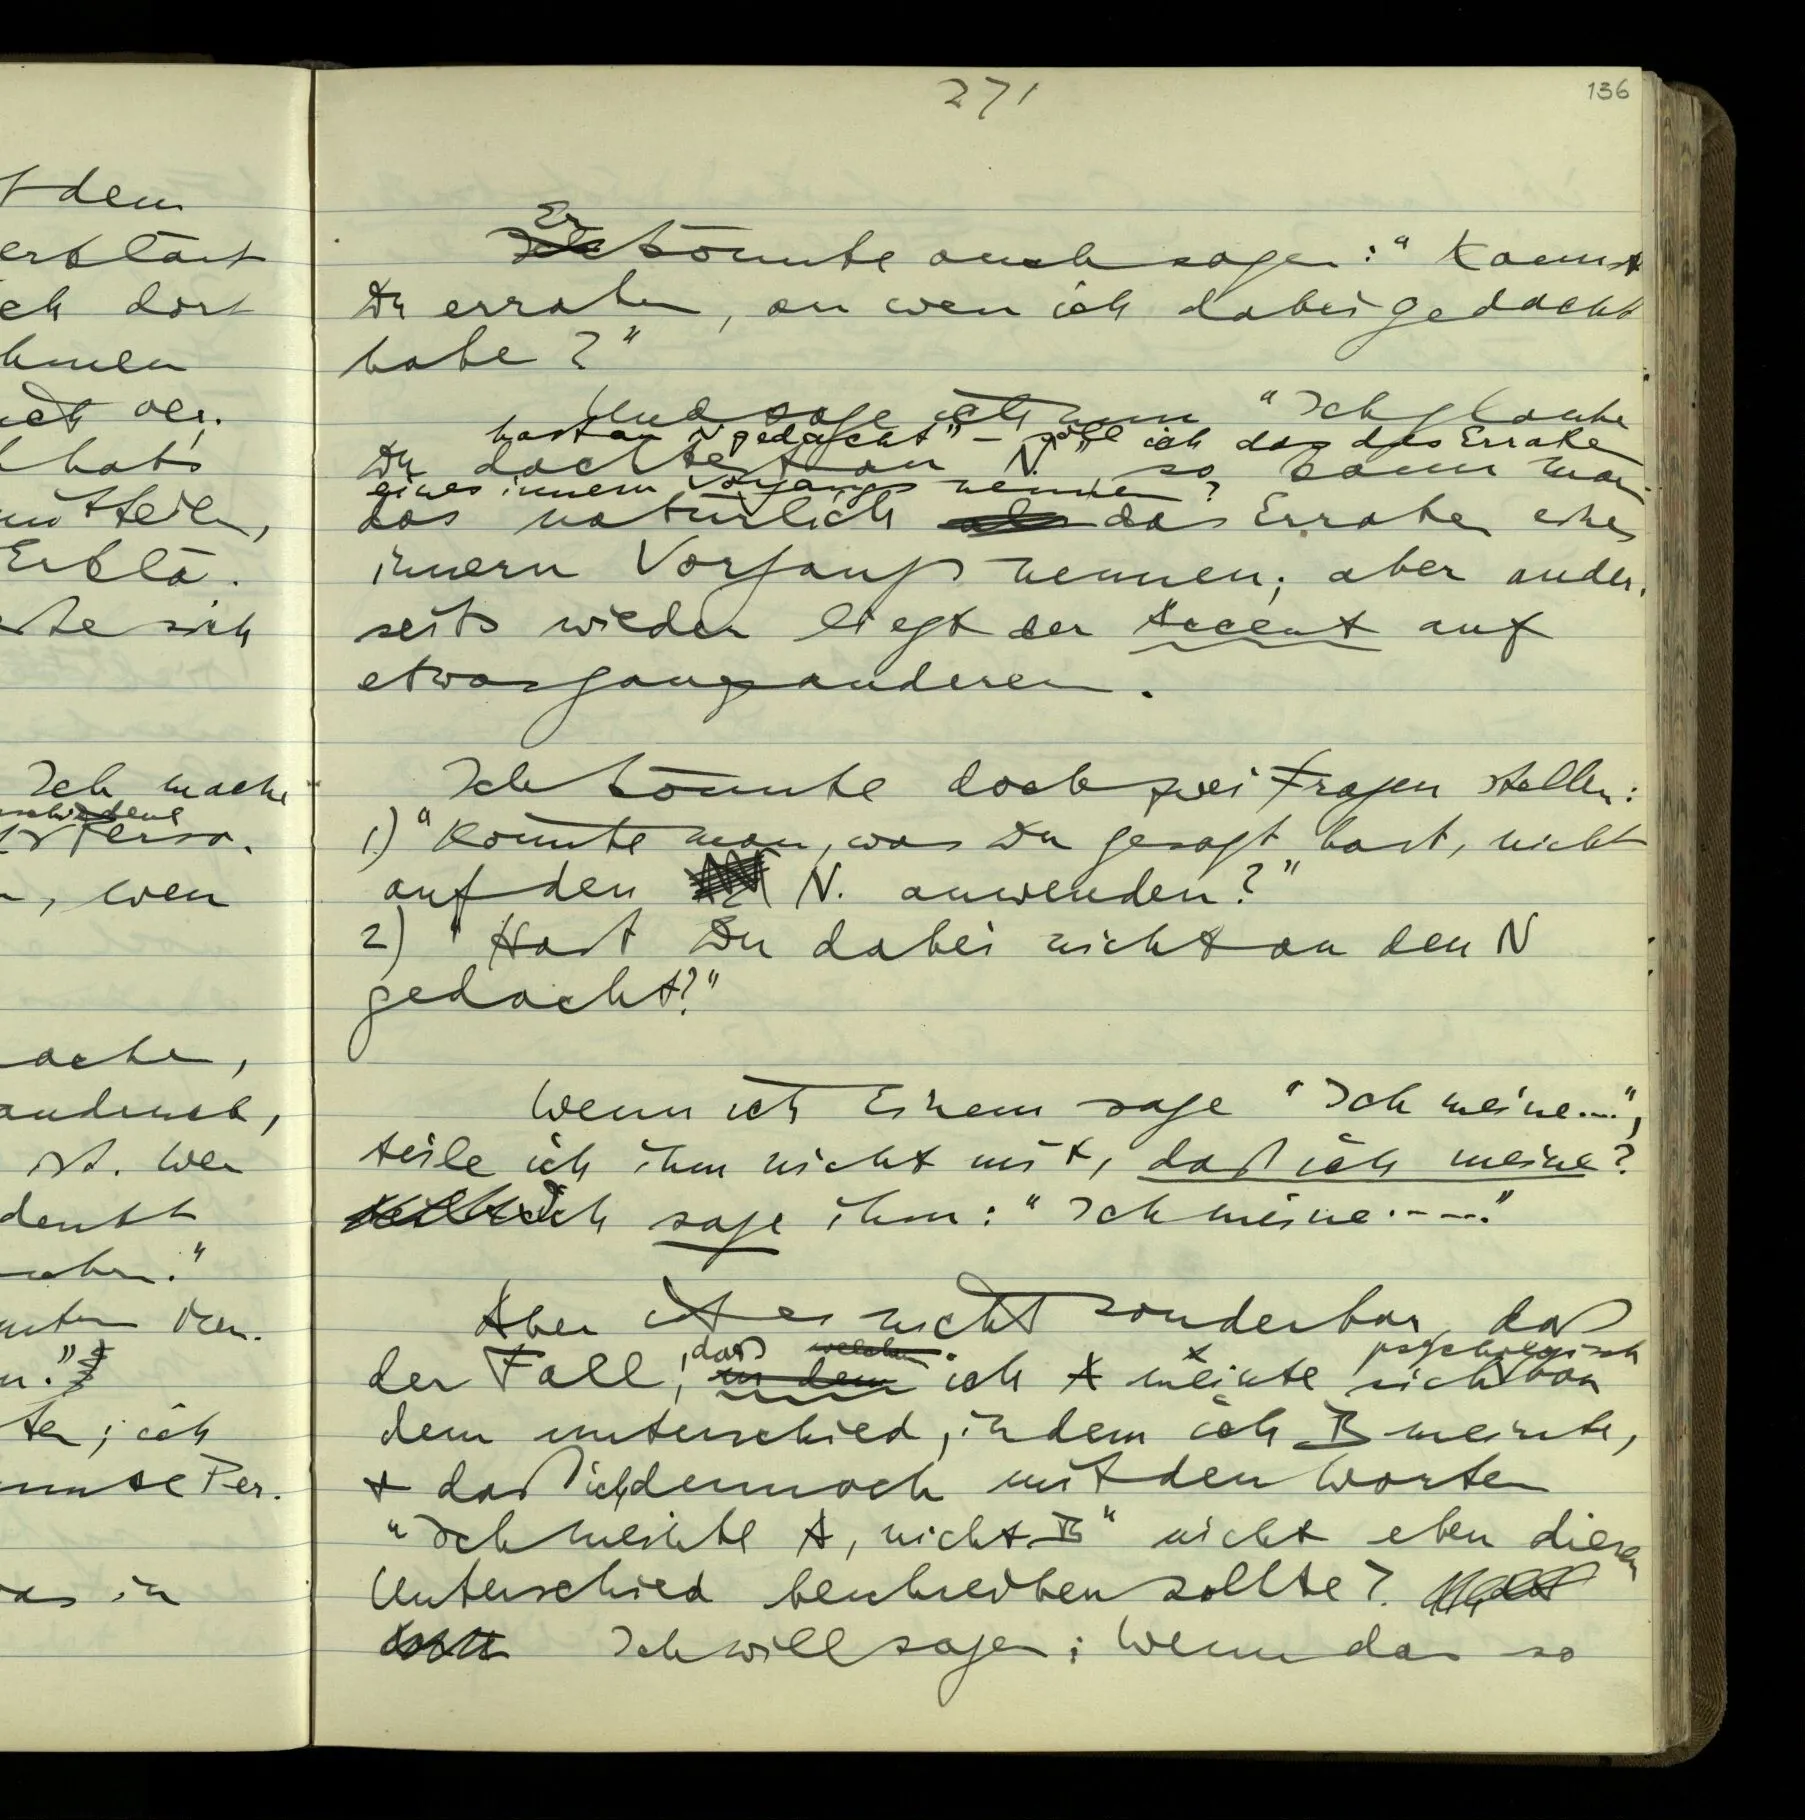 t dem
erklärt
ch dort
hmen
ver.
habs
mitteilen,
Erklä.
te sich
Ich mache
schiedene
Perso.
, wen
ache,
ausdruck,
ist. Wer
denkt
."
."
ten; ich
mmte Per.
as in
271
136
Er
Ich könnte auch sagen: "Kannst
Du erraten, an wen ich dabei gedacht
habe?"
Und sage ich nun "Ich glaube
hast an N gedacht" – soll ich das das Erraten
Du dachtest an N." so kann man
eines innern Vorgangs nennen?
das natürlich als das Erraten eines
innern Vorgangs nennen; aber ander.
seits wieder liegt der Accent auf
etwas ganz anderem.
Ich könnte doch zwei Fragen stellen:
1) "Könnte man, was Du gesagt hast, nicht
auf den N. anwenden?"
2) "Hast Du dabei nicht an den N
gedacht?"
Wenn ich Einem sage "Ich meine....",
teile ich ihm nicht mit, daß ich meine?
Ich sage ihm: "Ich meine....."
Aber ist es nicht sonderbar, daß
das welchen psychologisch
der Fall, in dem ich A meinte sich von
dem unterschied, in dem ich B meinte,
+ daß ich dennoch mit den Worten
"Ich meinte A, nicht B" nicht eben diesen
Unterschied beschreiben sollte?
Ich will sagen: Wenn das so